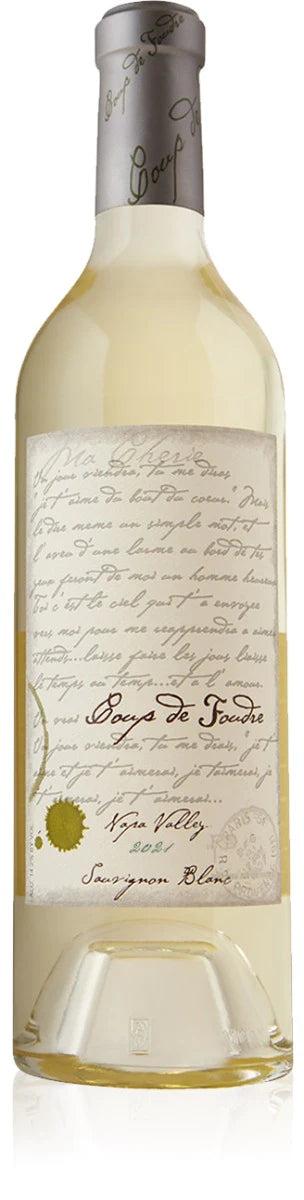 Coup de Foudre
Coup de
Ma Cherie
Un jour viendra, tu me diras
"je t'aime du bout du coeur." Mais
le dire meme un simple mot, et
l'aveu d'une larme au bord de tes
yeux feront de moi un homme heureux
Toi c'est le ciel qui t'a envoyee
vers moi pour me reapprendre a aimer
attends...laisse faire les jours laisse
le temps au temp...et a l'amour.
Un vrai Coup de Foudre
Un jour viendra, tu me dirais, "je t'
aime et je t'aimerai, je t'aimerai, je
t'aimerai, je t'aimerai...
Napa Valley
2021
Sauvignon Blanc
PARIS
R
ALC 14.2% BY VOL